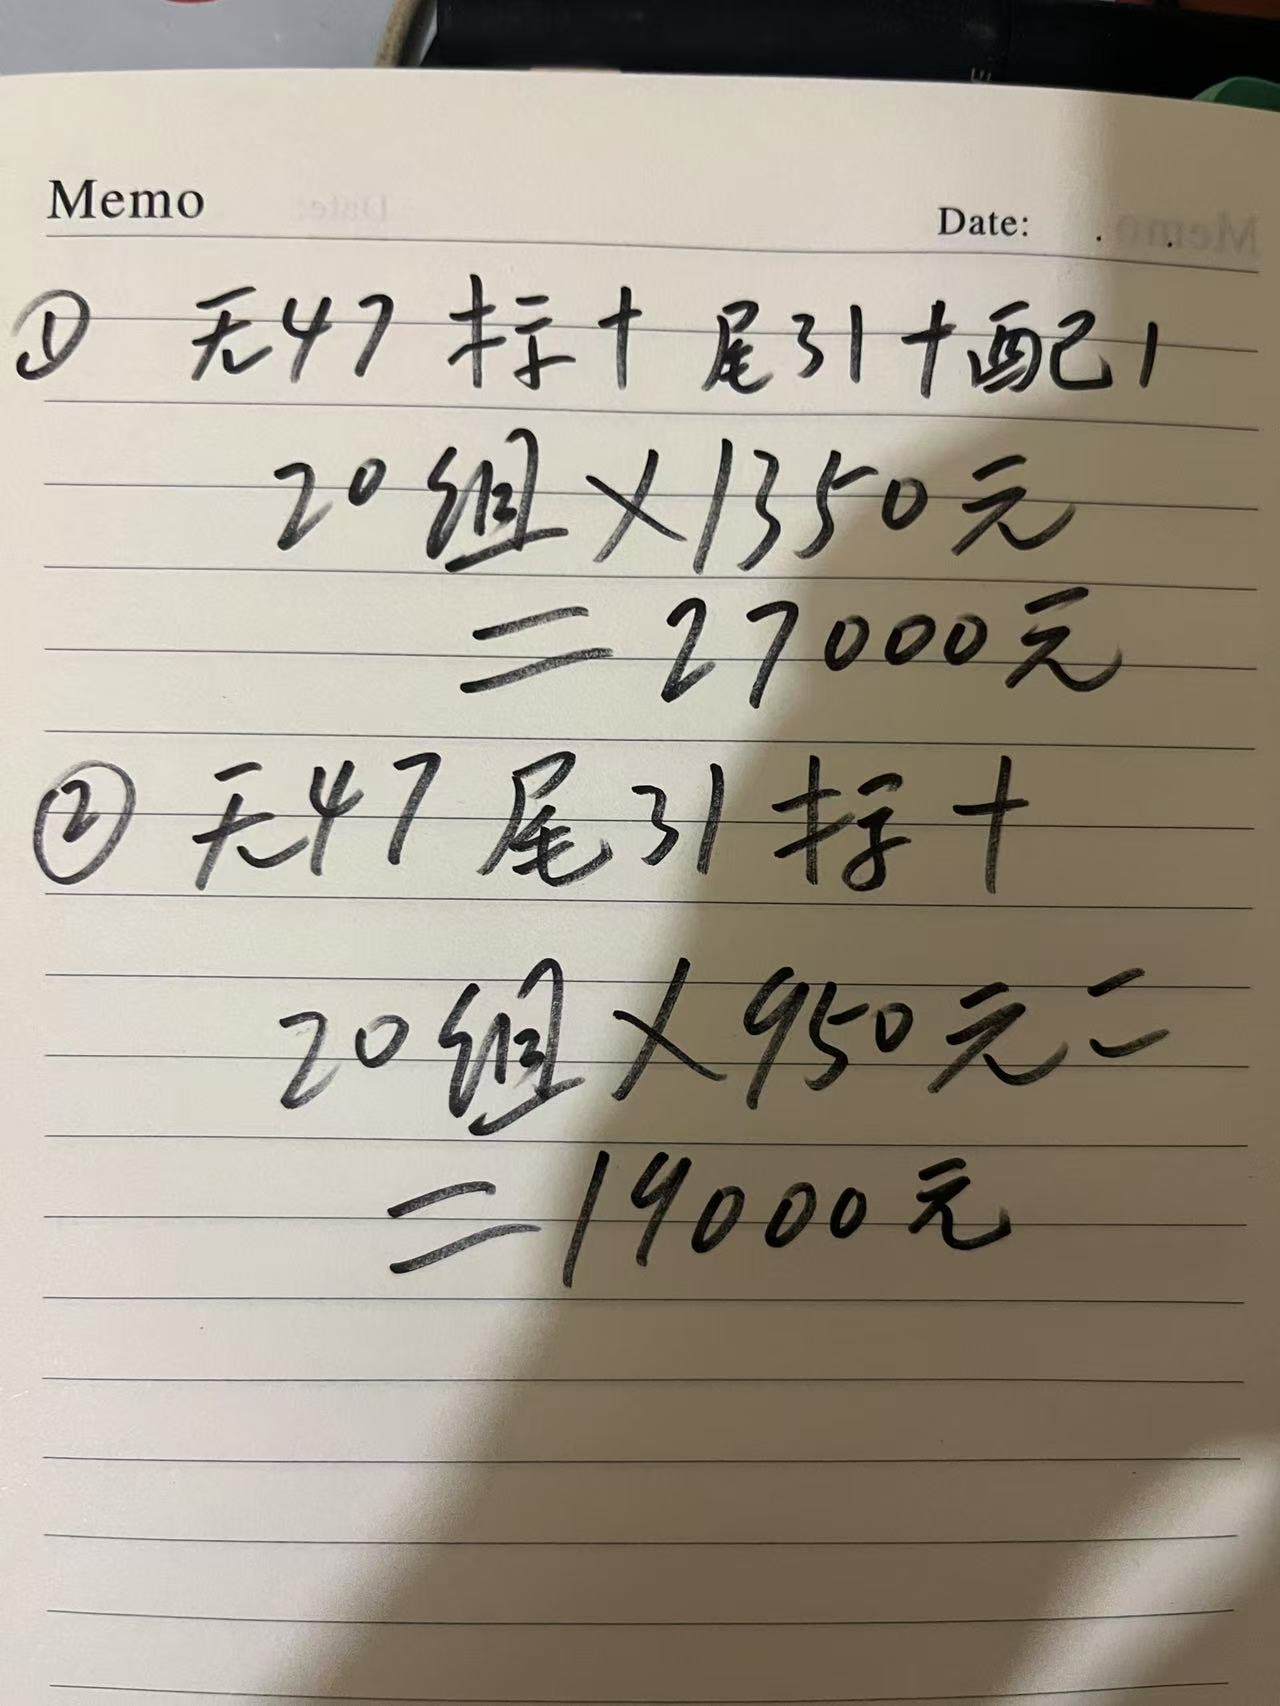 Memo
Date: . .
① 无47 标十 尾31十配1
20组×1350元
=27000元
② 无47 尾31 标十
20组×950元=
=19000元